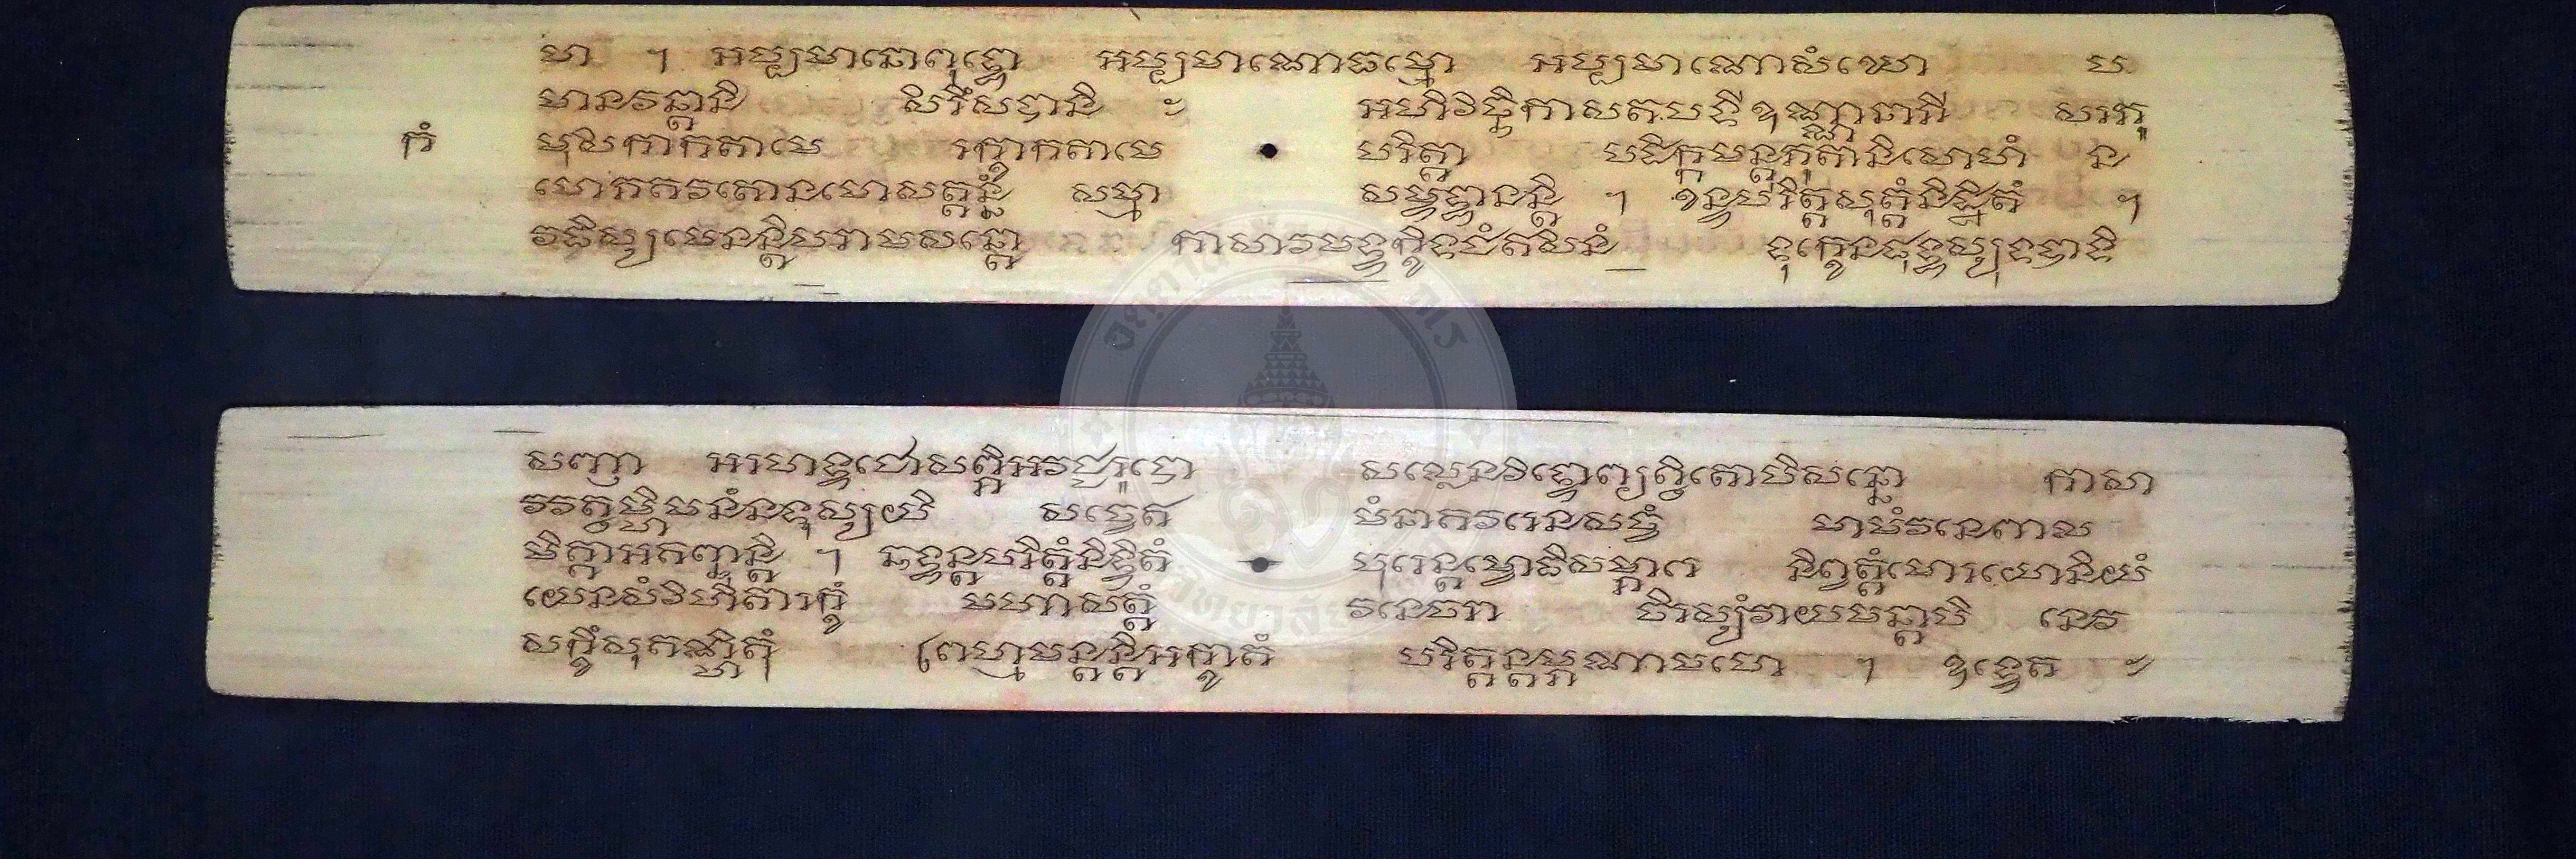 មា ។ អប្បមាណោពុទ្ធោ អប្បមាណោធម្មោ អប្បមាណោសំឃោ ប
មានវន្តានិ សិរិំសបានិ ៈ អហិវិច្ឆិកាសតបទីឧណ្ណានាភី សរភូ
មុសិកាកតាមេ រក្ខាកតាមេ បរិត្តា បដិក្កមន្តុភូតានិសោហំ ន
កំ
មោភគវតោនមោសត្តន្នំ សម្មា សម្ពុទ្ធានន្តិ ។ ខន្ធបរិត្តសុត្តំនិដ្ឋិតំ ។
វធិស្សមេនន្តិបរាមសន្តោ កាសាវមទ្ទក្ខិទ្ធជំឥសិនំ ទុក្ខេនផុដ្ឋស្សុទបាទិ
សញា អរហទ្ធជោសព្ភិអវជ្ឈរូបោ សល្លេនវិទ្ធោព្យព្ធិតោបិសន្តោ កាសា
វវត្ថម្ហិមនំនទុស្សយិ សចេឥ មំនាគវរេនសច្ចំ មាមំវនេពាល
មិគាអគញ្ឆុន្តិ ។ ឆទ្ទន្តបរិត្តំនិដ្ឋិតំ បុរេន្តម្ពោធិសម្ភារេ និព្វត្តំមោរយោនិយំ
យេនសំវិហិតារក្ខំ មហាសត្តំ វនេចរា ចិរស្សំវាយមន្តាបិ នេវ
សក្ខិំសុគណ្ហិតុំ ព្រហ្មមន្តន្តិអក្ខាតំ បរិត្តន្តម្ភណាមហេ ។ ឧទេត ៈ